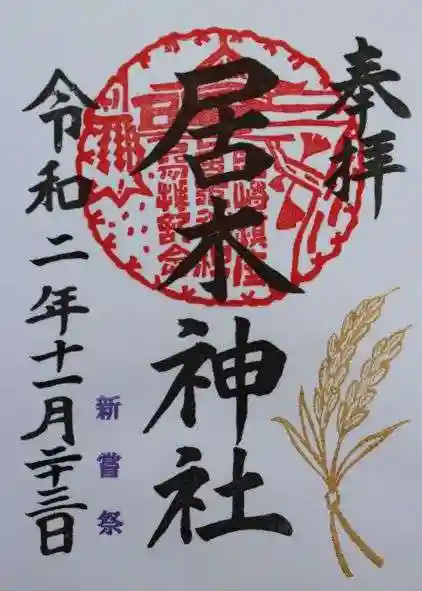 奉拝
居木神社
新嘗祭
令和二年十一月二十三日